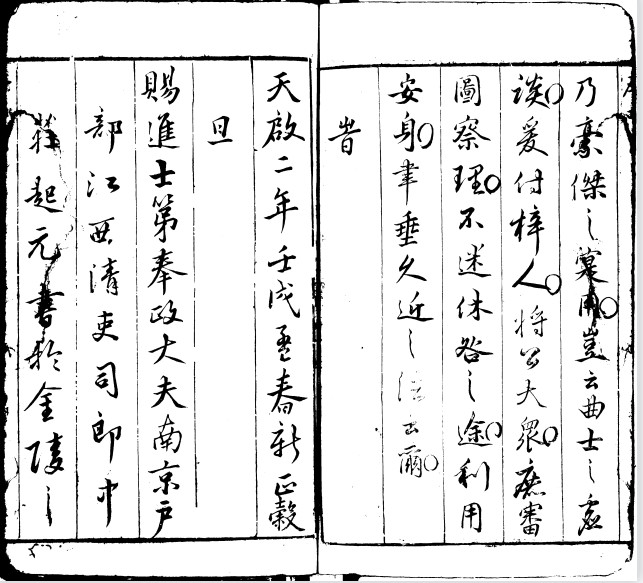 乃豪傑之寞用豈云曲士之虛
談爰付梓人將公大眾庶審
圖察理不迷休咎之途利用
安身聿垂久近之法云爾
旹
天啟二年壬戌孟春新正穀
旦
賜進士第奉政大夫南京戶
部江西清吏司郎中
莊起元書於金陵之